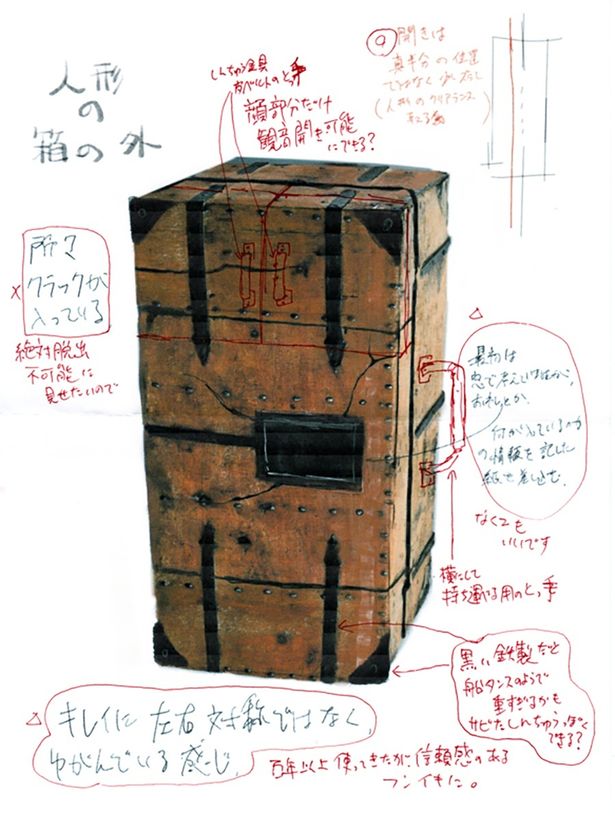 人形
の
箱の外
しんちゅう金具
かベルトのとっ手
顔部分だけ
観音開き可能
にできる?
開きは
真半分の位置
ではなく少しずらし
(人形のクリアランス
所々
クラックが
入っている
絶対脱出
不可能に
見せたいので
最初は
窓で考えていましたが、
何が入っているか
の情報を記した
紙を差し込む。
なくても
いいです
横にして
持ち運べる用のとっ手
黒い鉄製だと
船タンスのようで
重すぎるかも
サビたしんちゅうぽく
できる?
キレイに左右対称ではなく、
ゆがんでいる感じ。
百年以上使ってきたが信頼感のある
フンイキに。